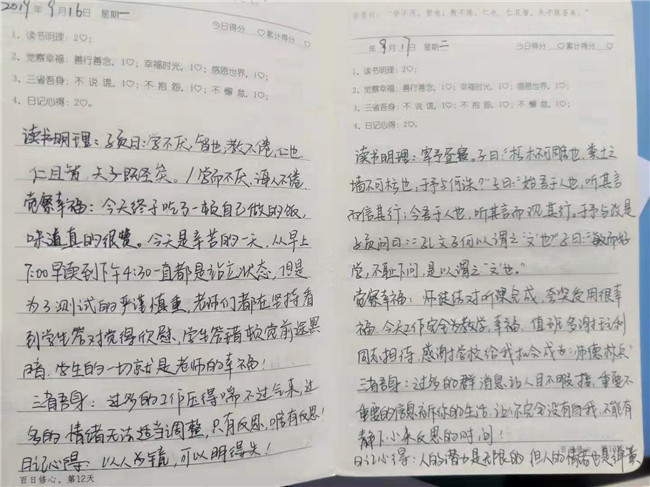 2019年9月16日 星期一
今日得分 ♡累计得分 ♡
1、读书明理：2♡；
2、觉察幸福：善行善念，1♡；幸福时光，1♡；感恩世界，1♡；
3、三省吾身：不 说 谎，1♡；不 抱 怨，1♡；不 懈 怠，1♡；
4、日记心得：2♡。
读书明理：子贡曰：学不厌，智也，教不倦，仁也
仁且智，夫子既圣矣。/学而不厌，诲人不倦
觉察幸福：今天终于吃了一顿自己做的饭，
味道真的很赞。今天是辛苦的一天，从早上
7:00早读到下午4:30一直都是站立状态，但是
为了测试的严谨慎重，老师们都在坚持看
到学生答对觉得欣慰，学生答错顿觉前途黑
暗，学生的一切就是老师的幸福！
三省吾身：过多的工作压得喘不过气来，过
多的情绪无法适当调整，只有反思，唯有反思！
日记心得：以人为镜，可以明得失！
百日修心，第12天
年 9月17日 星期二
今日得分 ♡累计得分 ♡
1、读书明理：2♡；
2、觉察幸福：善行善念，1♡；幸福时光，1♡；感恩世界，1♡；
3、三省吾身：不 说 谎，1♡；不 抱 怨，1♡；不 懈 怠，1♡；
4、日记心得：2♡。
读书明理：宰予昼寝。子曰："朽木不可雕也，粪土之
墙不可杇也，于予与何诛？"子曰："始吾于人也，听其言
而信其行；今吾于人也，听其言而观其行。于予与改是
子贡问曰："孔文子何以谓之'文'也"子曰："敏而好
学，不耻下问，是以谓之'文'也。"
觉察幸福：师徒结对听课完成，
福，今天工作
周志担待，感谢学校给我机会成为"师德标兵"
三省吾身：过多的群消息让人目不暇接，重要不
重要的信息
静下心来反思的时间！
日记心得：人的潜力是无限的 但人的情绪也是